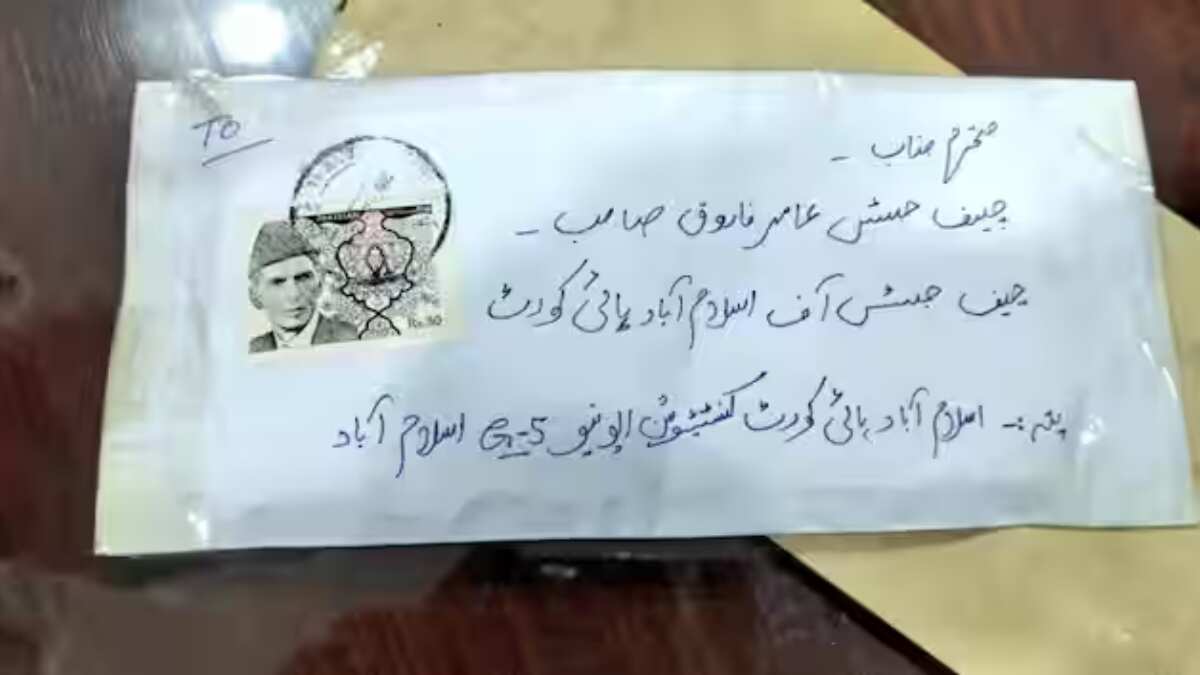 TO
محترم جناب ۔
چیف جسٹس عامر فاروق صاحب ۔
چیف جسٹس آف اسلام آباد ہائی کورٹ
پتہ :۔ اسلام آباد ہائی کورٹ کنسٹیٹیوشن ایونیو G-5 اسلام آباد
Rs.50